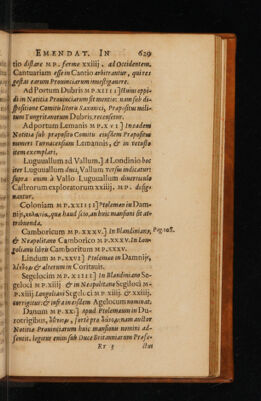 EMENDAT. IN 629
tio distare M.P. ferme xxiiij. ad Occidentem.
Cantuariam esse in Cantio arbitrantur, qui res
gestas earum Prouinciarum inuestigauere.
Ad Portum Dubris M P. XIIII] Huius oppi-
di in Notitia Prouinciarum fit mentio: nam sub di-
spositione Comitis litoris Saxonici, Præpositus mili-
tum Tungritanorum Dubris, recensetur.
Ad portum Lemanis M P. XVI] In eadem
Notitia sub proposito Comitis eiusdem Præpositus
numeri Turnacensium Lemannis, & in vetusto
item exemplari.
Luguuallum ad Vallum.] A Londinio hoc
iter Luguuallum duci, Vallum versus indicatur:
supra enim à Vallo Luguuallum diuerticula
Castrorum exploratorum xxiiij. M P. desig-
nantur.
Coloniam M P. XXIIII] Ptolemæo in Dam-
nijs, quæ haud scio, an huic mansioni sit at-
tribuenda.
Camboricum M P. XXXV.] In Blandiniano, Pag. 108.
& Neapolitano Camborico M P. XXXV. In Lon-
goliano libro Camboritum M P. XXXV.
Lindum M P. XXVI] Ptolemæo in Damnijs,
& alterum in Coritauis.
Segelocim M P. XIIII] In Blandiniano Se-
geloci M P. xiiij & in Neapolitano Segiloci M-
P. xiiij Longoliani Segeloci M P. xiiij. & xxiiij.
corrigitur: & infra in eisdem Agelocum nominat.
Danum M P. XX.] apud Ptolemæum in Du-
rotrigibus, fortè pro nam auctor
Notitiæ Prouinciarum huic mansioni nomini ad-
sentit. legitur enim sub Duce Britanniarum Præfe-
Rr 3 ctus